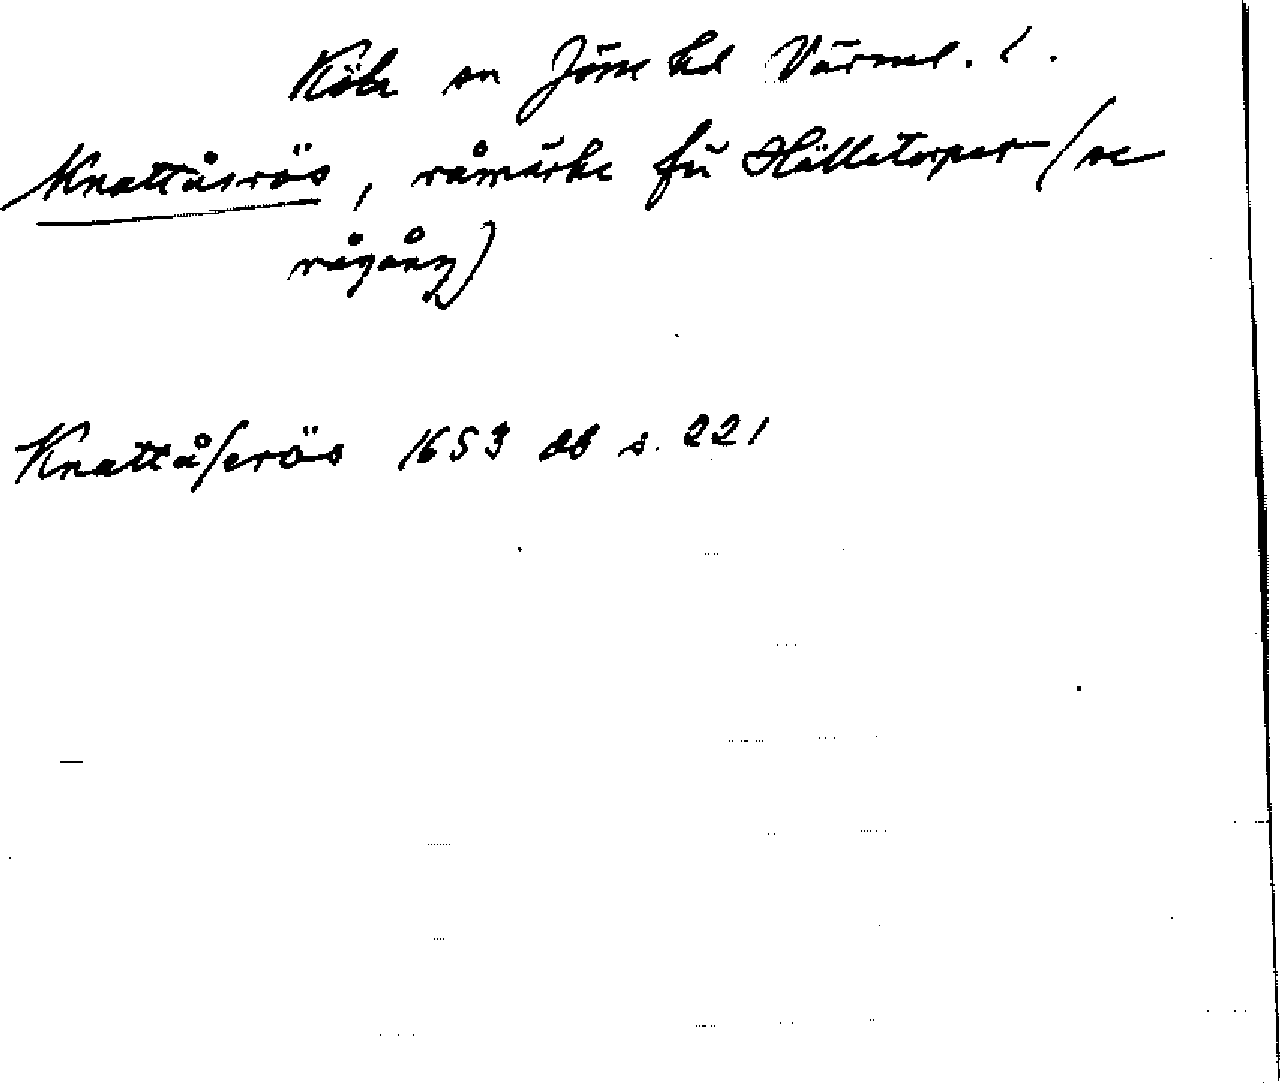 Köla sn Jösse hd Värml. l.
Knattåsrös, råmärke för Hälletorpet (se
rågång)
Knattåſerös 1653 db s. 221